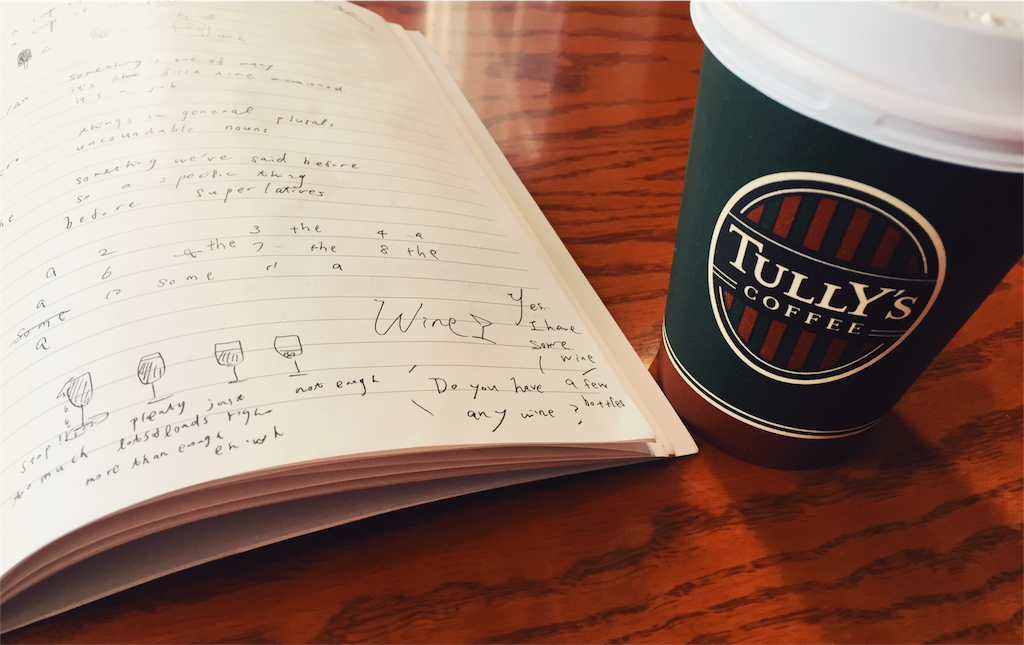 one
something one of many
it's the first time mentioned
it's a job
things in general plural.
uncoundable nouns
something we've said before
so a specific thing
before superlatives
a 2 a the 3 the 4 a
a 6 the 7 the 8 the
some 10 some 11 a
a
Wine
Yes.
I have
some
wine
a few
bottles
Do you have
any wine?
stop!
too much
plenty
lots & loads
more than enough
just
right
enough
not enough
TULLY'S
COFFEE